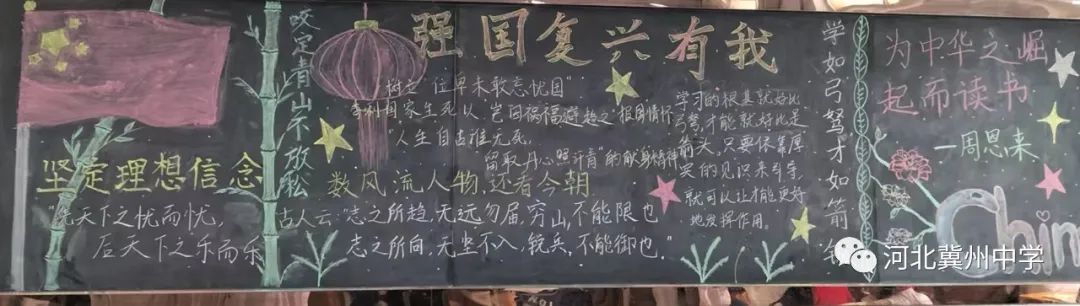 坚定理想信念
"先天下之忧而忧,
后天下之乐而乐
咬定青山不放松
强国复兴有我
树立"位卑未敢忘忧国"
利国家生死以,岂因祸福避趋之"报国情怀
人生自古谁无死,
留取丹心照汗青"的献身精神
数风流人物,还看今朝
古人云:"志之所趋,无远勿届,穷山,不能限也
志之所向,无坚不入,锐兵,不能御也。"
学习的根基就好比
弓弩,才能就好比是
箭头,只要依靠厚
实的见识来引导,
就可以让才能更好
地发挥作用。
学如弓弩才如箭
为中华之崛
起而读书
一周恩来
China
河北冀州中学